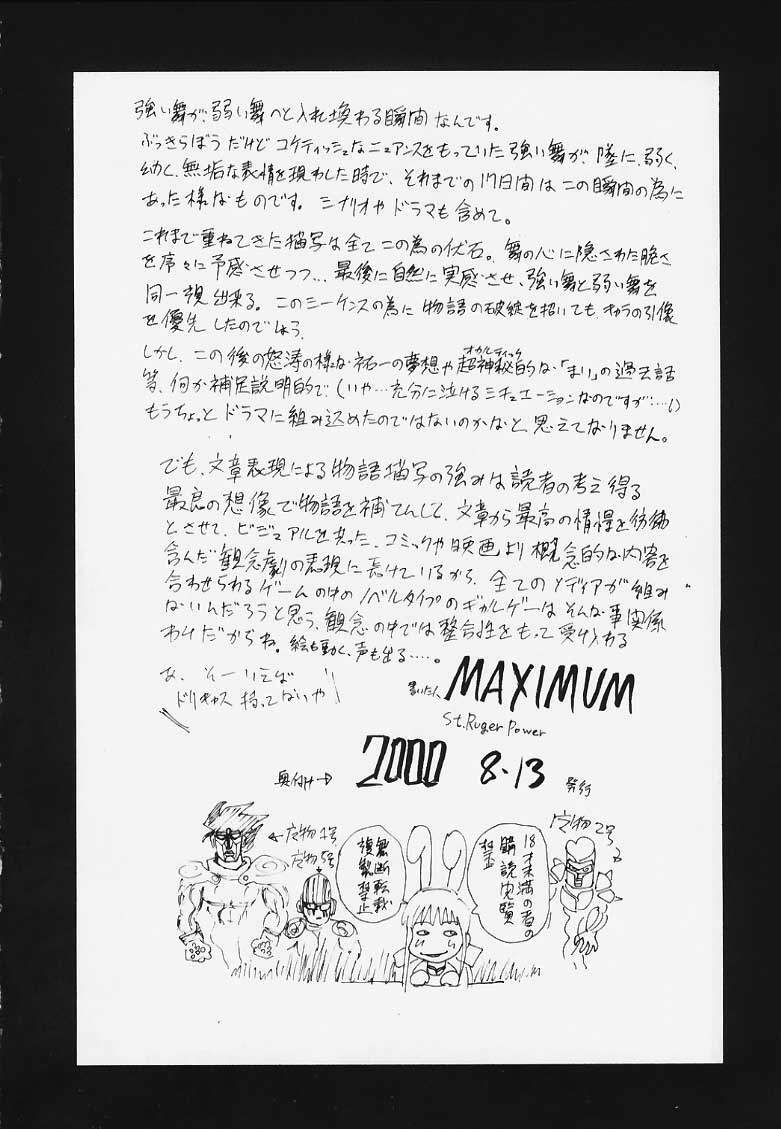 強い舞が、弱い舞へと入れ換わる瞬間なんです。
ぶっきらぼうだけどコケティッシュなニュアンスをもっていた強い舞が、陸に、弱く、
幼く、無垢な表情を現わした時で、それまでの17日間はこの瞬間の為に
あった様なものです。シナリオやドラマも含めて。
これまで重ねてきた描写は全てこの為の伏石。舞の心に隠された脆さ
を序々に予感させつつ…最後に自然に実感させ、強い舞と弱い舞を
同一視出来る。このシーケンスの為に物語の破綻を招いても、キャラの引像
を優先したのでしょう。
しかし、この後の怒涛の様な祐一の夢想や超神秘的な「まい」の過去話
オカルティック
等、何か補足説明的で(いや…充分に泣けるシチュエーションなのですが……)
もうちょっとドラマに組み込めたのではないのかなと、思えてなりません。
でも、文章表現による物語描写の強みは読者の考え得る
最良の想像で物語を補てんして、文章から最高の情憬を彷彿
とさせて、ビジュアルを失った、コミックや映画より概念的な内容を
含んだ観念劇の表現に長けているから、全てのメディアが組み
合わせられるゲームの中のノベルタイプのギャルゲーはそんな事実係
ないんだろうと思う、観念の中では整合性をもって受け入れる
わけだからね。絵も動く、声も出る……。
あ、そーいえば
ドリキャス持ってないや
書いた人 MAXIMUM
St.Ruger Power
奥付け→ 2000 8・13 発行
←広物1号
広物5号
無断転載
複製禁止
18才未満の者の
購読閲覧
禁止
広物2号